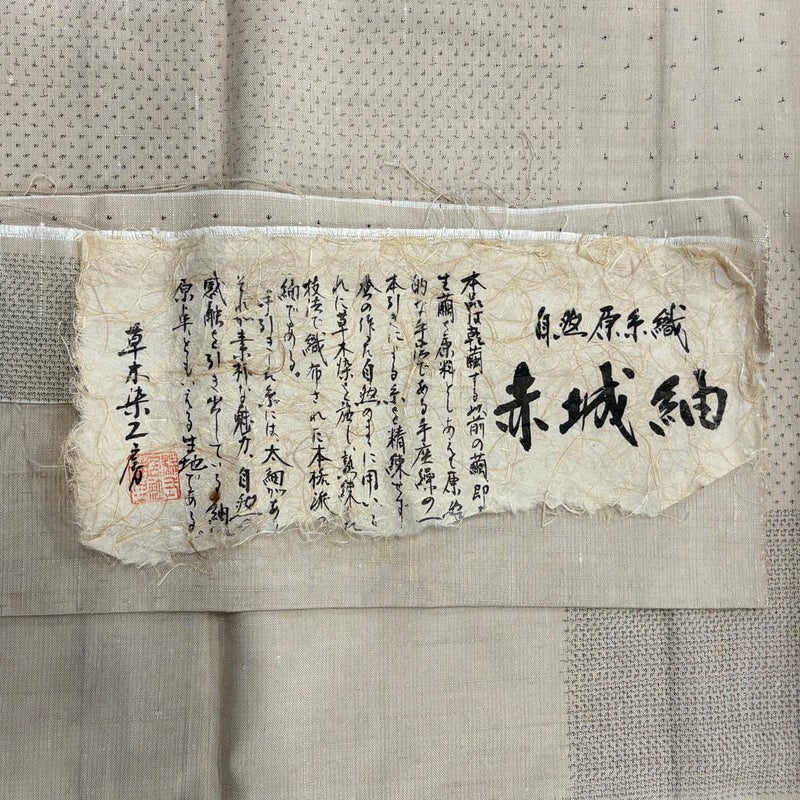 自然原糸織
赤城紬
本品は乾繭する以前の繭即ち
生繭を原料としあくまで原始
的な手法である手座繰の一
本引きによる糸を精練せず
蚕の作った自然のままに用いら
れた草木染を施し熟練し
技法で織布された本格派の
紬である。
手引きした糸には太細があり
それが素朴な魅力、自然
感触を引き出している紬
原点ともいえる生地である。
草木染工房